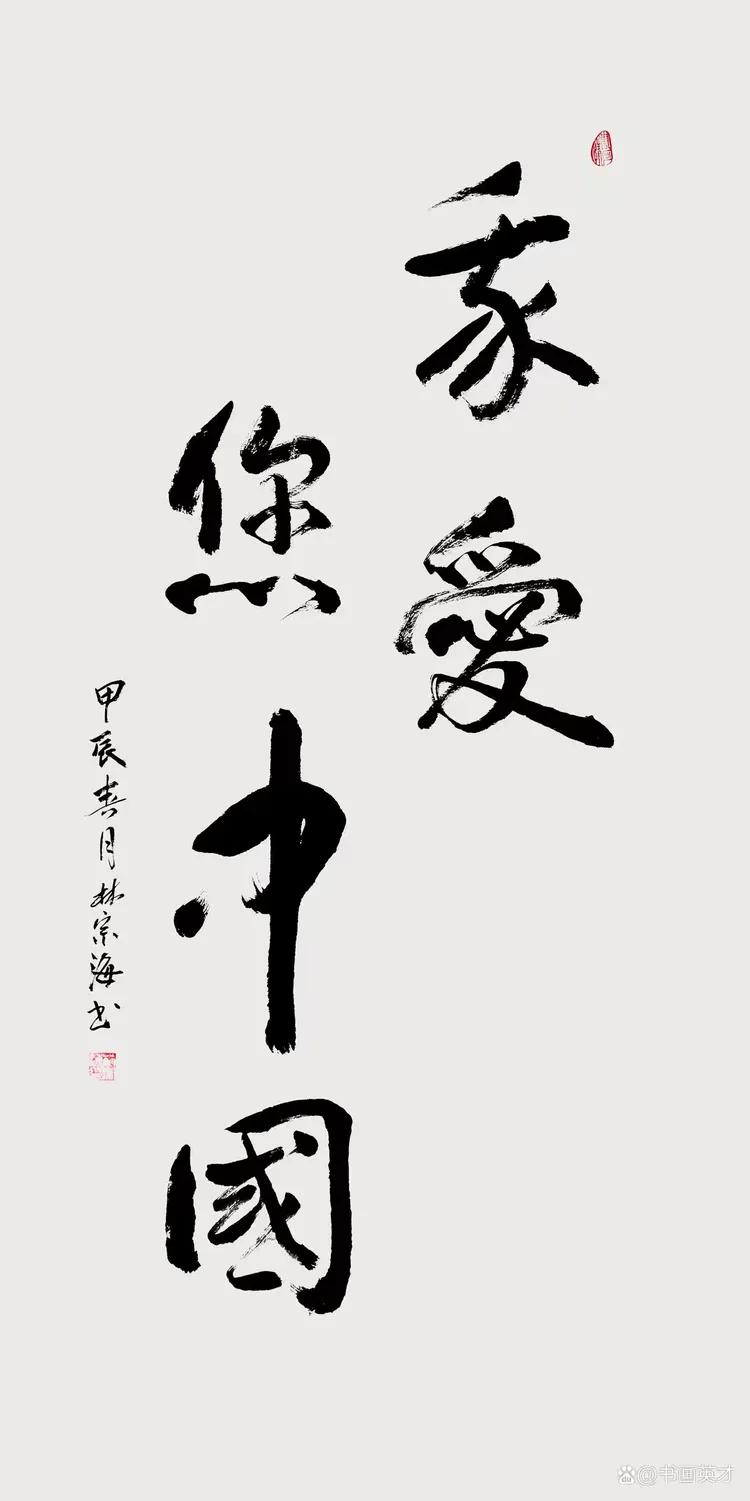 我愛
您中國
甲辰春月林宗海书
@书画英才